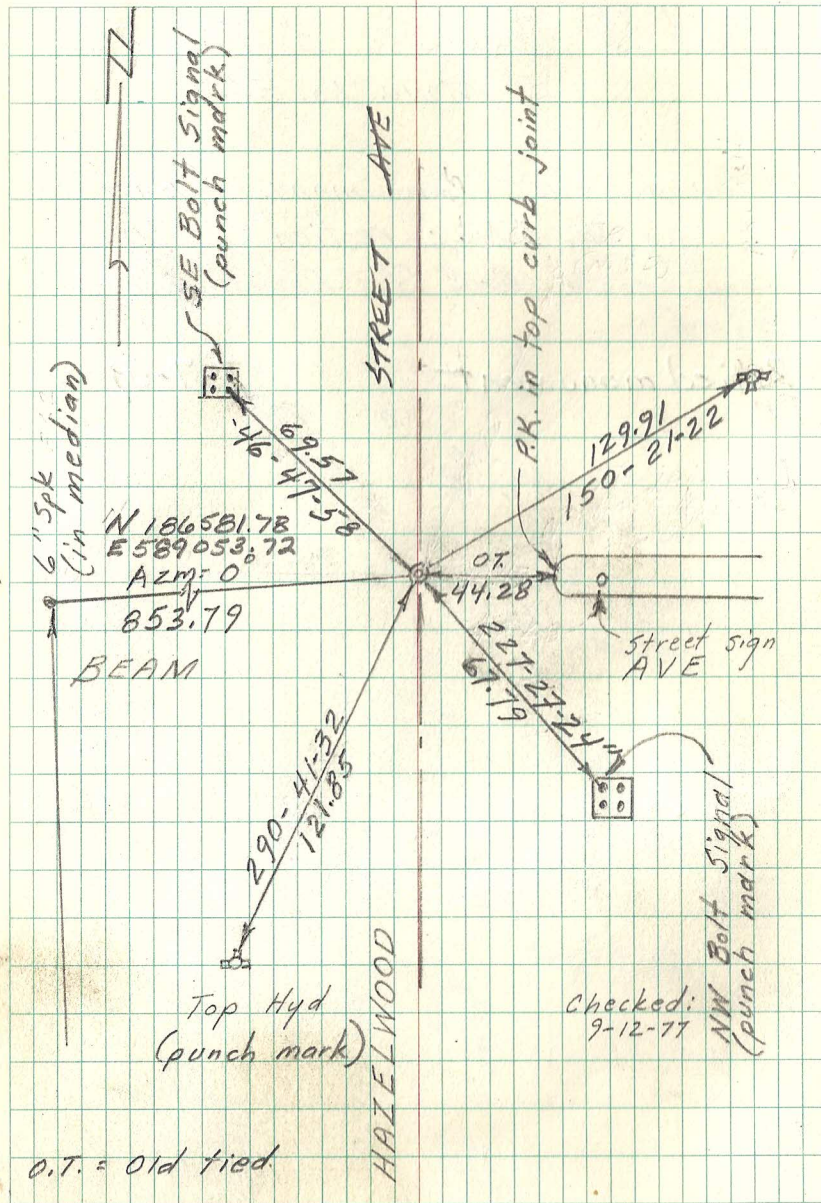 N
SE Bolt Signal
(punch mark)
STREET AVE
P.K. in top curb joint
6" Spk
(in median)
69.57
46-47-58
129.91
150-21-22
N 186581.78
E 589053.72
Azm = 0°
853.79
BEAM
O.T.
44.28
Street Sign
AVE
227-27-24"
67.79
290-41-32
121.85
NW Bolt Signal
(punch mark)
Top Hyd
(punch mark)
HAZELWOOD
Checked:
9-12-77
O.T. = Old tied.